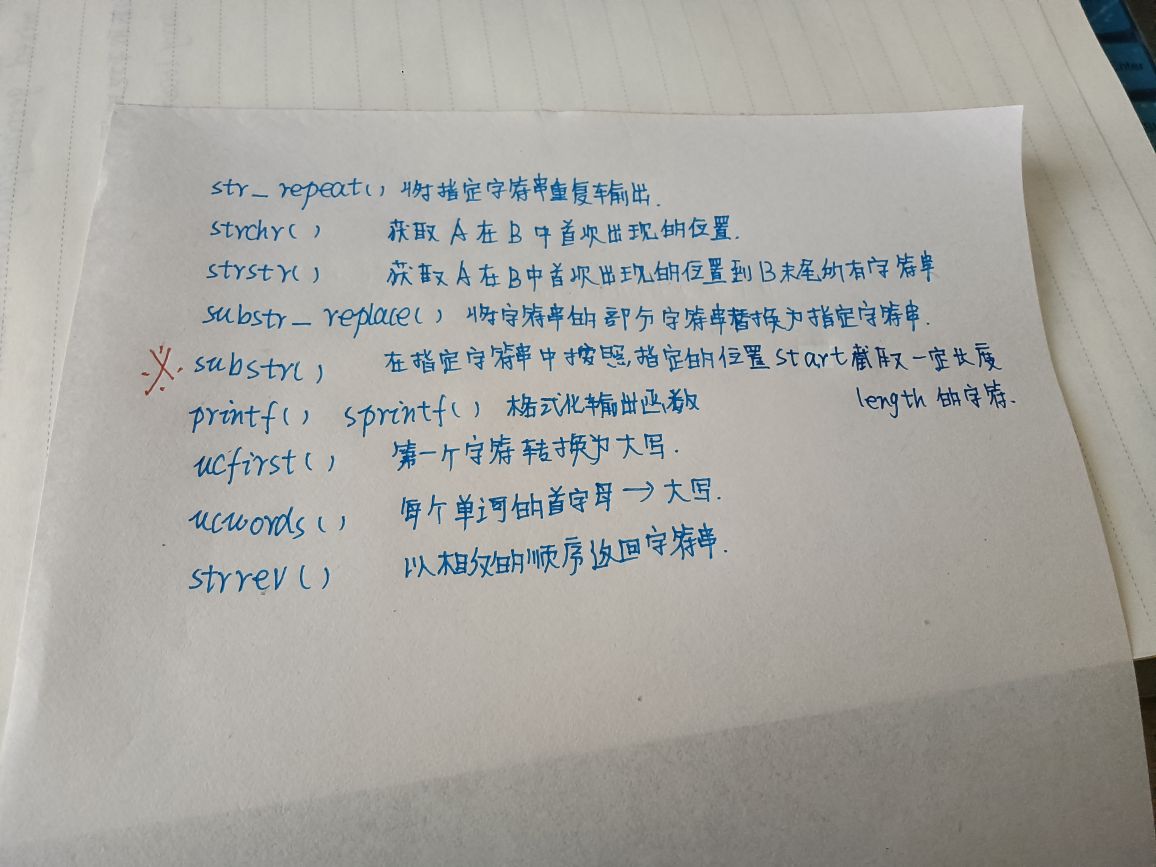 str_repeat() 将指定字符串重复输出.
strchr() 获取A在B中首次出现的位置.
strstr() 获取A在B中首次出现的位置到B末尾所有字符串
substr_replace() 将字符串的部分字符串替换为指定字符串.
※ substr() 在指定字符串中按照指定的位置start截取一定长度
length的字符.
printf() sprintf() 格式化输出函数
ucfirst() 第一个字符转换为大写.
ucwords() 每个单词的首字母→大写.
strrev() 以相反的顺序返回字符串.